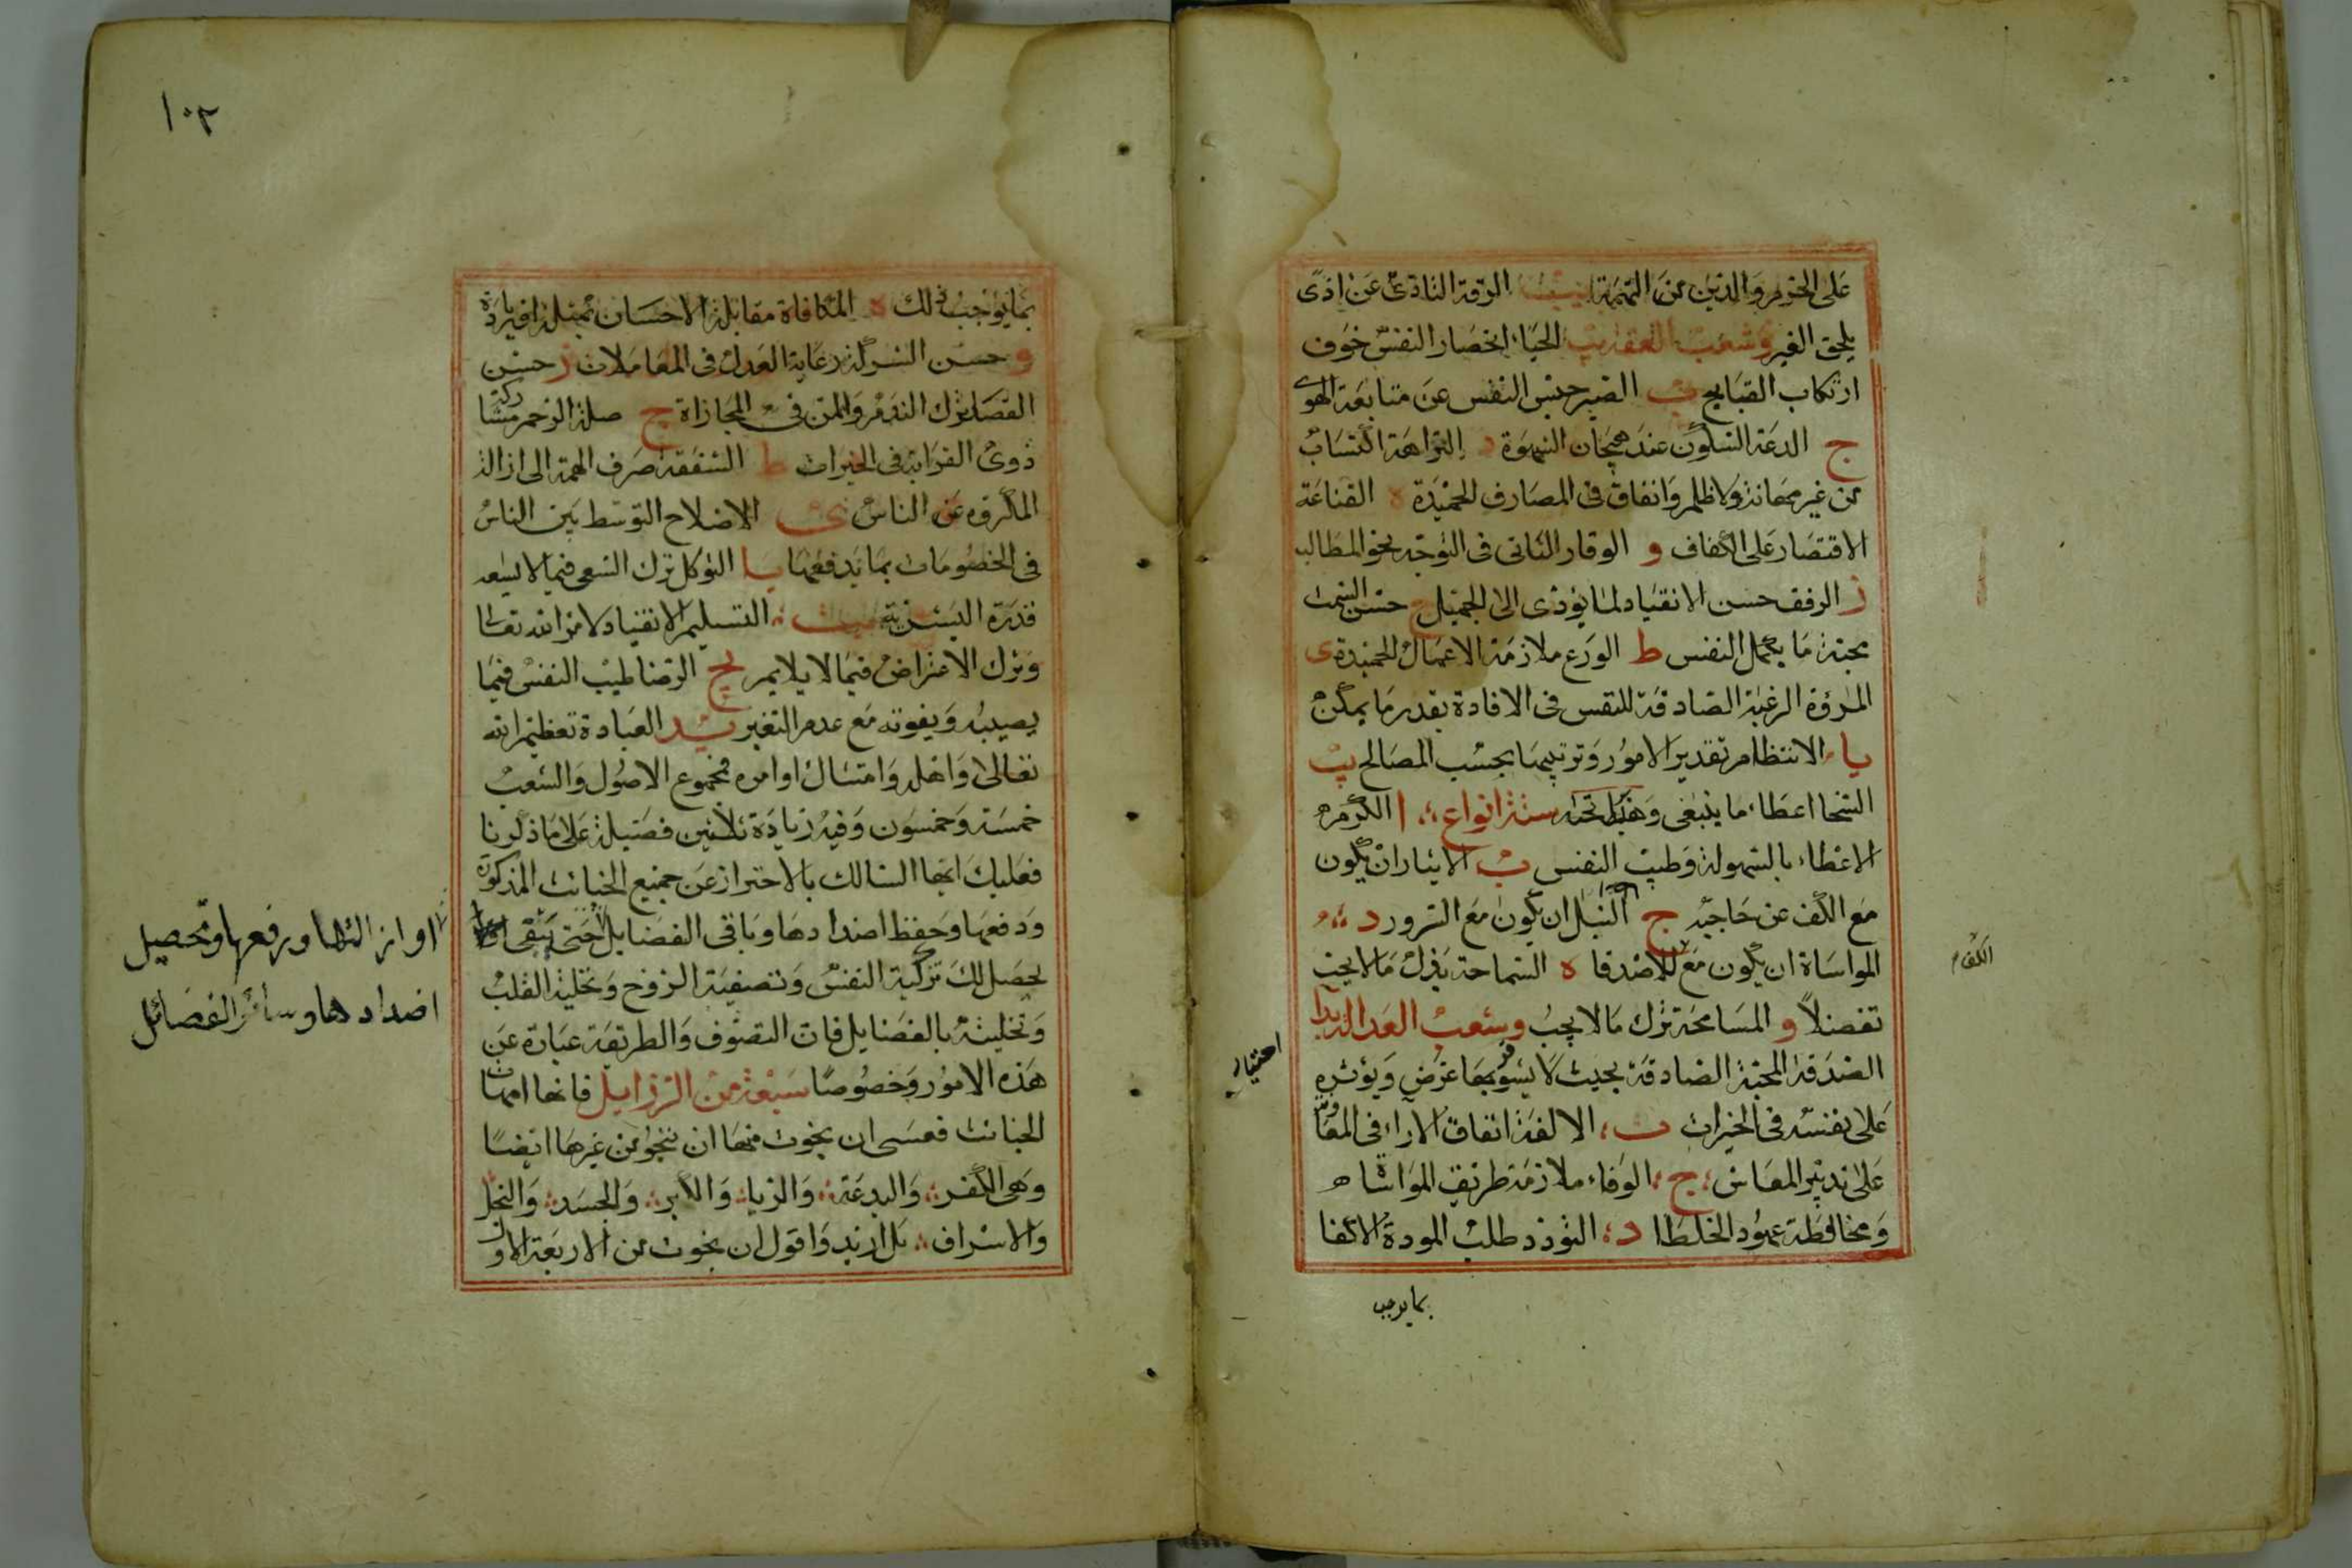 على الحرم والدين من التهمة يب الرقة التأذى عن اذى
يلحق الغير وشعب العفة يب الحياء انحصار النفس خوف
ارتكاب القبايح ب الصبر حبس النفس عن متابعة الهوى
ج الدعة السكون عند هيجان الشهوة د النزاهة اكتساب
من غير مهانة ولا ظلم وانفاق فى المصارف الحميدة ه القناعة
الاقتصار على الكفاف و الوقار التانى فى التوجه نحو المطالب
ز الرفق حسن الانقياد لما يؤدى الى الجميل ح حسن السمت
محبة ما يكمل النفس ط الورع ملازمة الاعمال الحميدة ى
المروة الرغبة الصادقة للنفس فى الافادة بقدر ما يمكن
يا الانتظام تقدير الامور وترتيبها بحسب المصالح يب
السخا اعطاء ما ينبغى وهذا تحته ستة انواع ا الكرم
الاعطاء بالسهولة وطيب النفس ب الايثار ان يكون
مع الكف عن حاجته ج النبل ان يكون مع السرور د
المواساة ان يكون مع الاصدقا ه السماحة بذل ما لا يجب
تفضلا و المسامحة ترك ما لا يجب وشعب العدالة يد ا
الصدقة المحبة الصادقة بحيث لا يشوبها غرض ويؤثره
على نفسه فى الخيرات ب الالفة اتفاق الاراء فى المعاونة
على تدبير المعاش ج الوفاء ملازمة طريق المواساة
ومحافظة عهود الخلطا د التودد طلب المودة الاكفا
بما يوجب
الكف م
اختيار
١٠٣
بما يوجب ذلك ه المكافاة مقابلة الاحسان بمثله او زيادة
و حسن الشركة رعاية العدل فى المعاملات ز حسن
القضا ترك الندم والمن فى المجازاة ح صلة الرحم مشاركة
ذوى القرابة فى الخيرات ط الشفقة صرف الهمة الى ازالة
المكروه عن الناس ى الاصلاح التوسط بين الناس
فى الخصومات بما يدفعها يا التوكل ترك السعى فيما لا يسعه
قدرة البشرية يب التسليم الانقياد لامر الله تعالى
وترك الاعتراض فيما لا يلايم يج الرضا طيب النفس فيما
يصيبه ويفوته مع عدم التغير يد العبادة تعظيم الله
تعالى واهله وامتثال اوامره فمجموع الاصول والشعب
خمسة وخمسون وفيه زيادة ثلاثين فضيلة على ما ذكرنا
فعليك ايها السالك بالاحتراز عن جميع الخبائث المذكورة
ودفعها وحفظ اضدادها وباقى الفضايل حتى يبقى
يحصل لك تزكية النفس وتصفية الروح وتخلية القلب
وتحليته بالفضايل فان التصوف والطريقة عبارة عن
هذه الامور وخصوصا سبعة من الرزايل فانها امهات
الخبائث فعسى ان نجوت منها ان تنجو من غيرها ايضا
وهى الكفر والبدعة والريا والكبر والحسد والبخل
والاسراف بل ازيد واقول ان نجوت من الاربعة الاول
او ازالتها ورفعها وتحصيل
اضدادها وسائر الفضائل